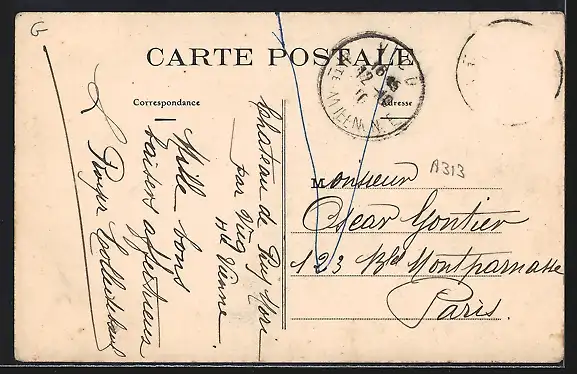 G
CARTE POSTALE
Correspondance
Adresse
Château de Puy Mori
par Vicq
Hte Vienne
Mille bons
baisers affectueux
A313
Monsieur
Oscar Gontier
123 Bld Montparnasse
Paris.